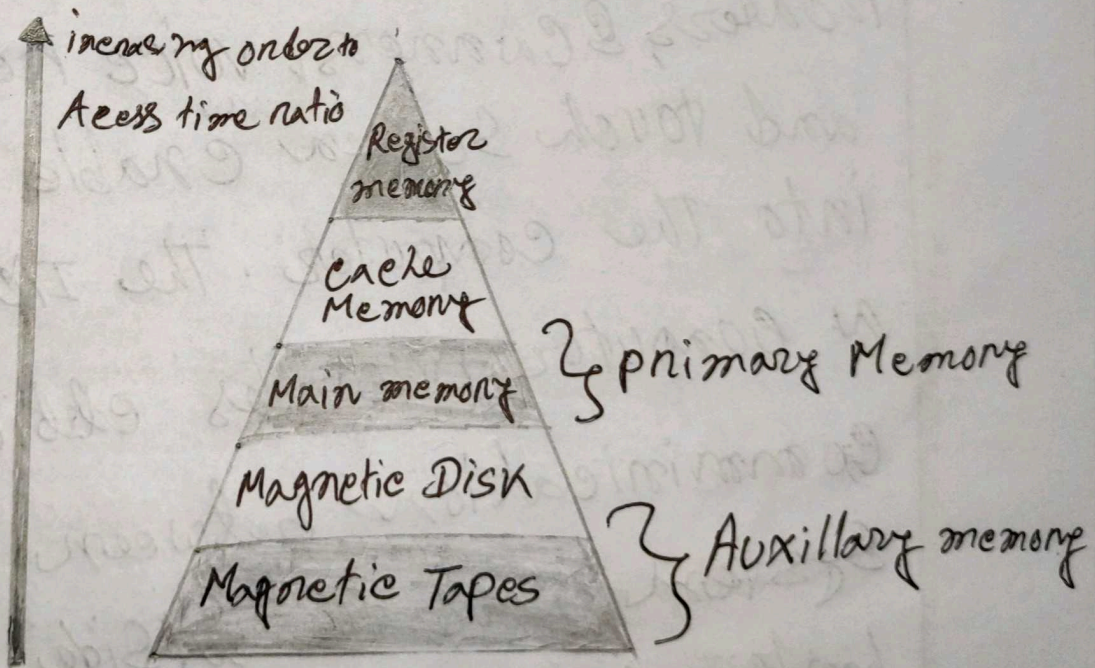 increasing order to
Acess time ratio
Register
memory
Cache
Memory
Main memory
Primary Memory
Magnetic Disk
Magnetic Tapes
Auxillary memory